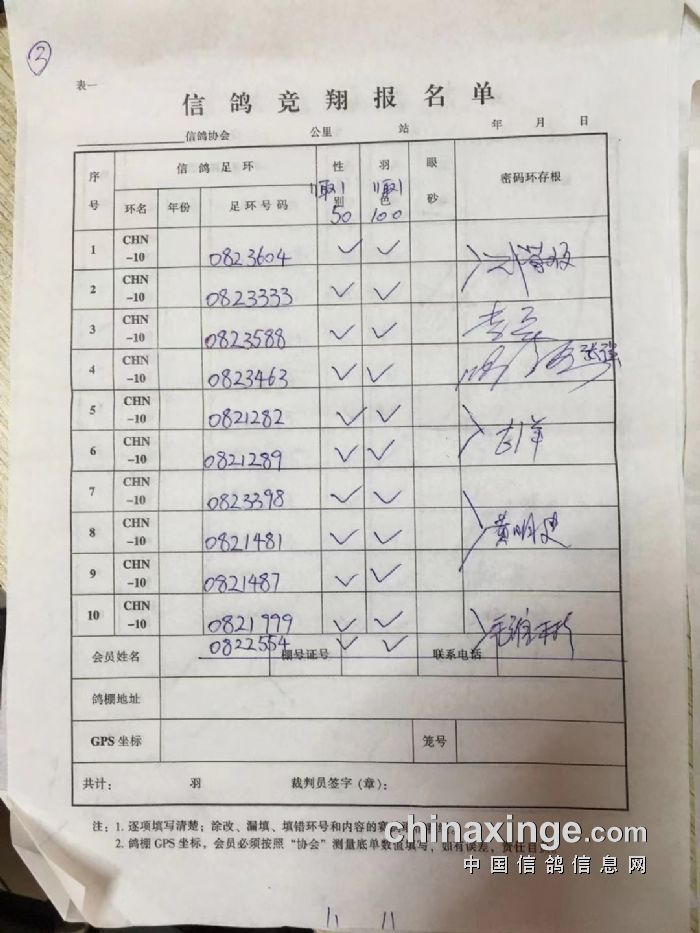 3
表一
信鸽竞翔报名单
信鸽协会 公里 站 年 月 日
序号 信鸽足环 性别 羽色 眼砂 密码环存根
取1 取1
环名 年份 足环号码 50 100
1 CHN-10 0823604 ✓ ✓
2 CHN-10 0823333 ✓ ✓
3 CHN-10 0823588 ✓ ✓
4 CHN-10 0823463 ✓ ✓
5 CHN-10 0821282 ✓ ✓
6 CHN-10 0821289 ✓ ✓
7 CHN-10 0823398 ✓ ✓
8 CHN-10 0821481 ✓ ✓
9 CHN-10 0821487 ✓ ✓
10 CHN-10 0821999 ✓ ✓
0822554 ✓ ✓
会员姓名 棚号证号 联系电话
鸽棚地址
GPS坐标 笼号
共计: 羽 裁判员签字(章):
注: 1. 逐项填写清楚;涂改、漏填、填错环号和内容的
2. 鸽棚GPS坐标,会员必须按照“协会”测量底单数值填写,如有误差,责任自
chinaxinge.com
中国信鸽信息网